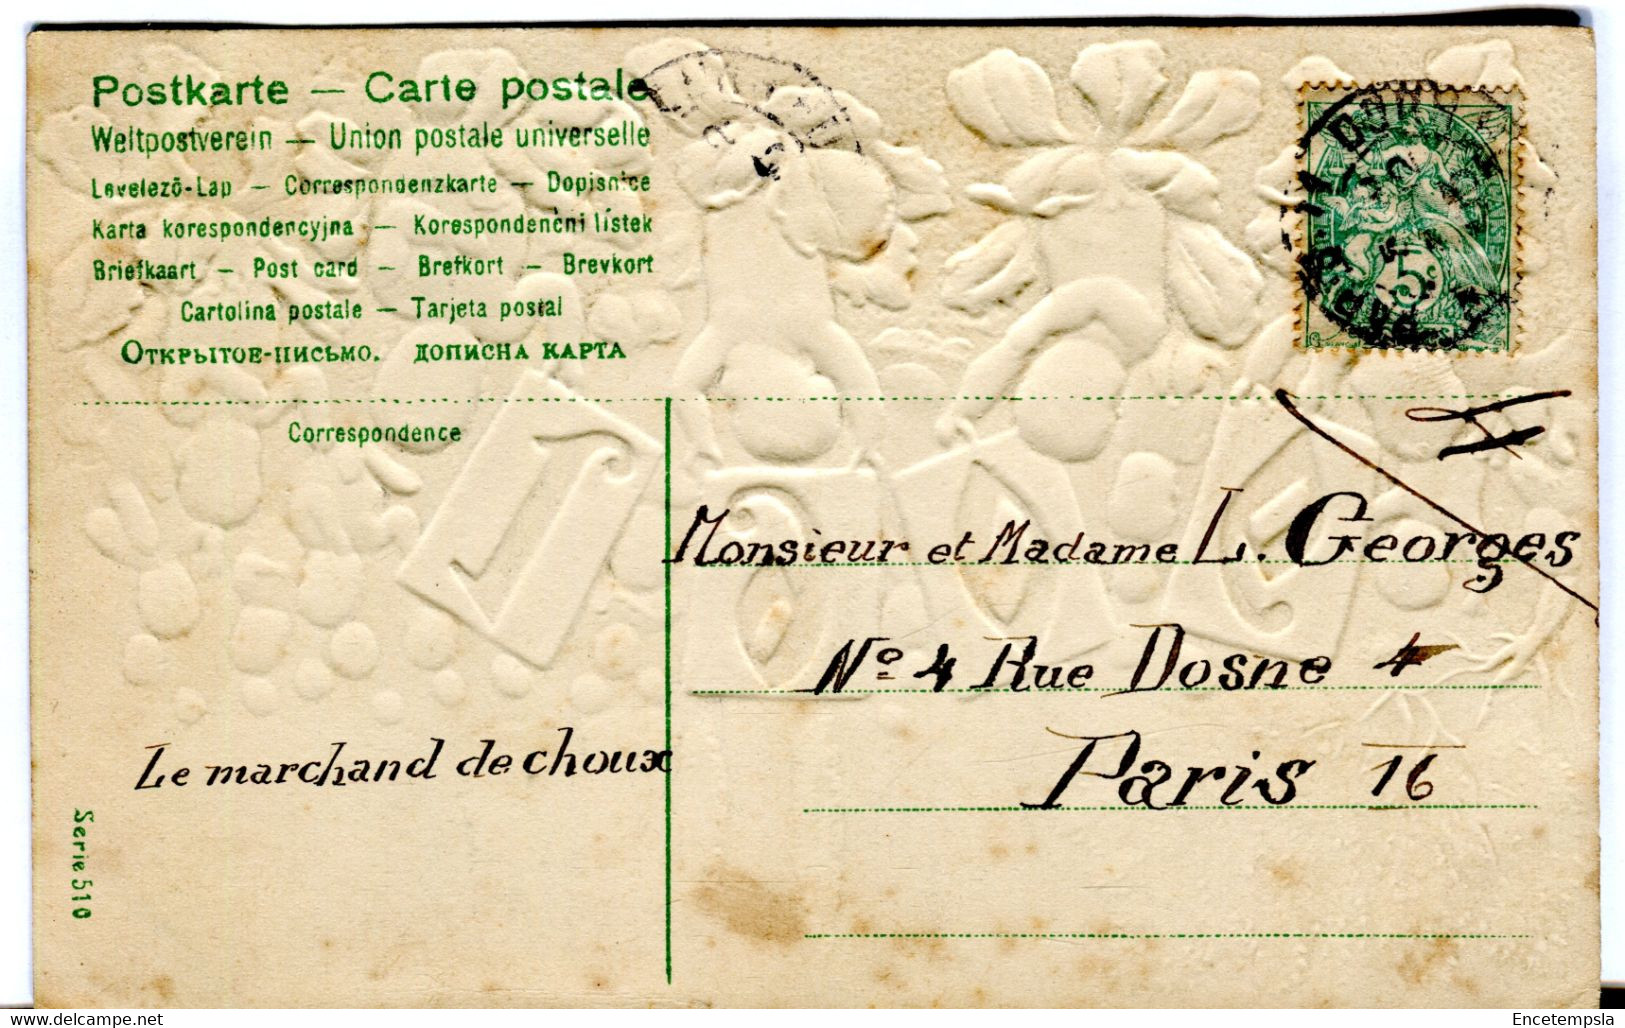 Postkarte — Carte postale
Weltpostverein — Union postale universelle
Levelező-Lap — Correspondenzkarte — Dopisnice
Karta korespondencyjna — Korespondenčni lístek
Briefkaart — Post card — Brefkort — Brevkort
Cartolina postale — Tarjeta postal
Открытое-письмо. дописна карта
Correspondence
5c
Monsieur et Madame L. Georges
No 4 Rue Dosne 4
Paris 16
Le marchand de choux
Serie 510
Encetempsla